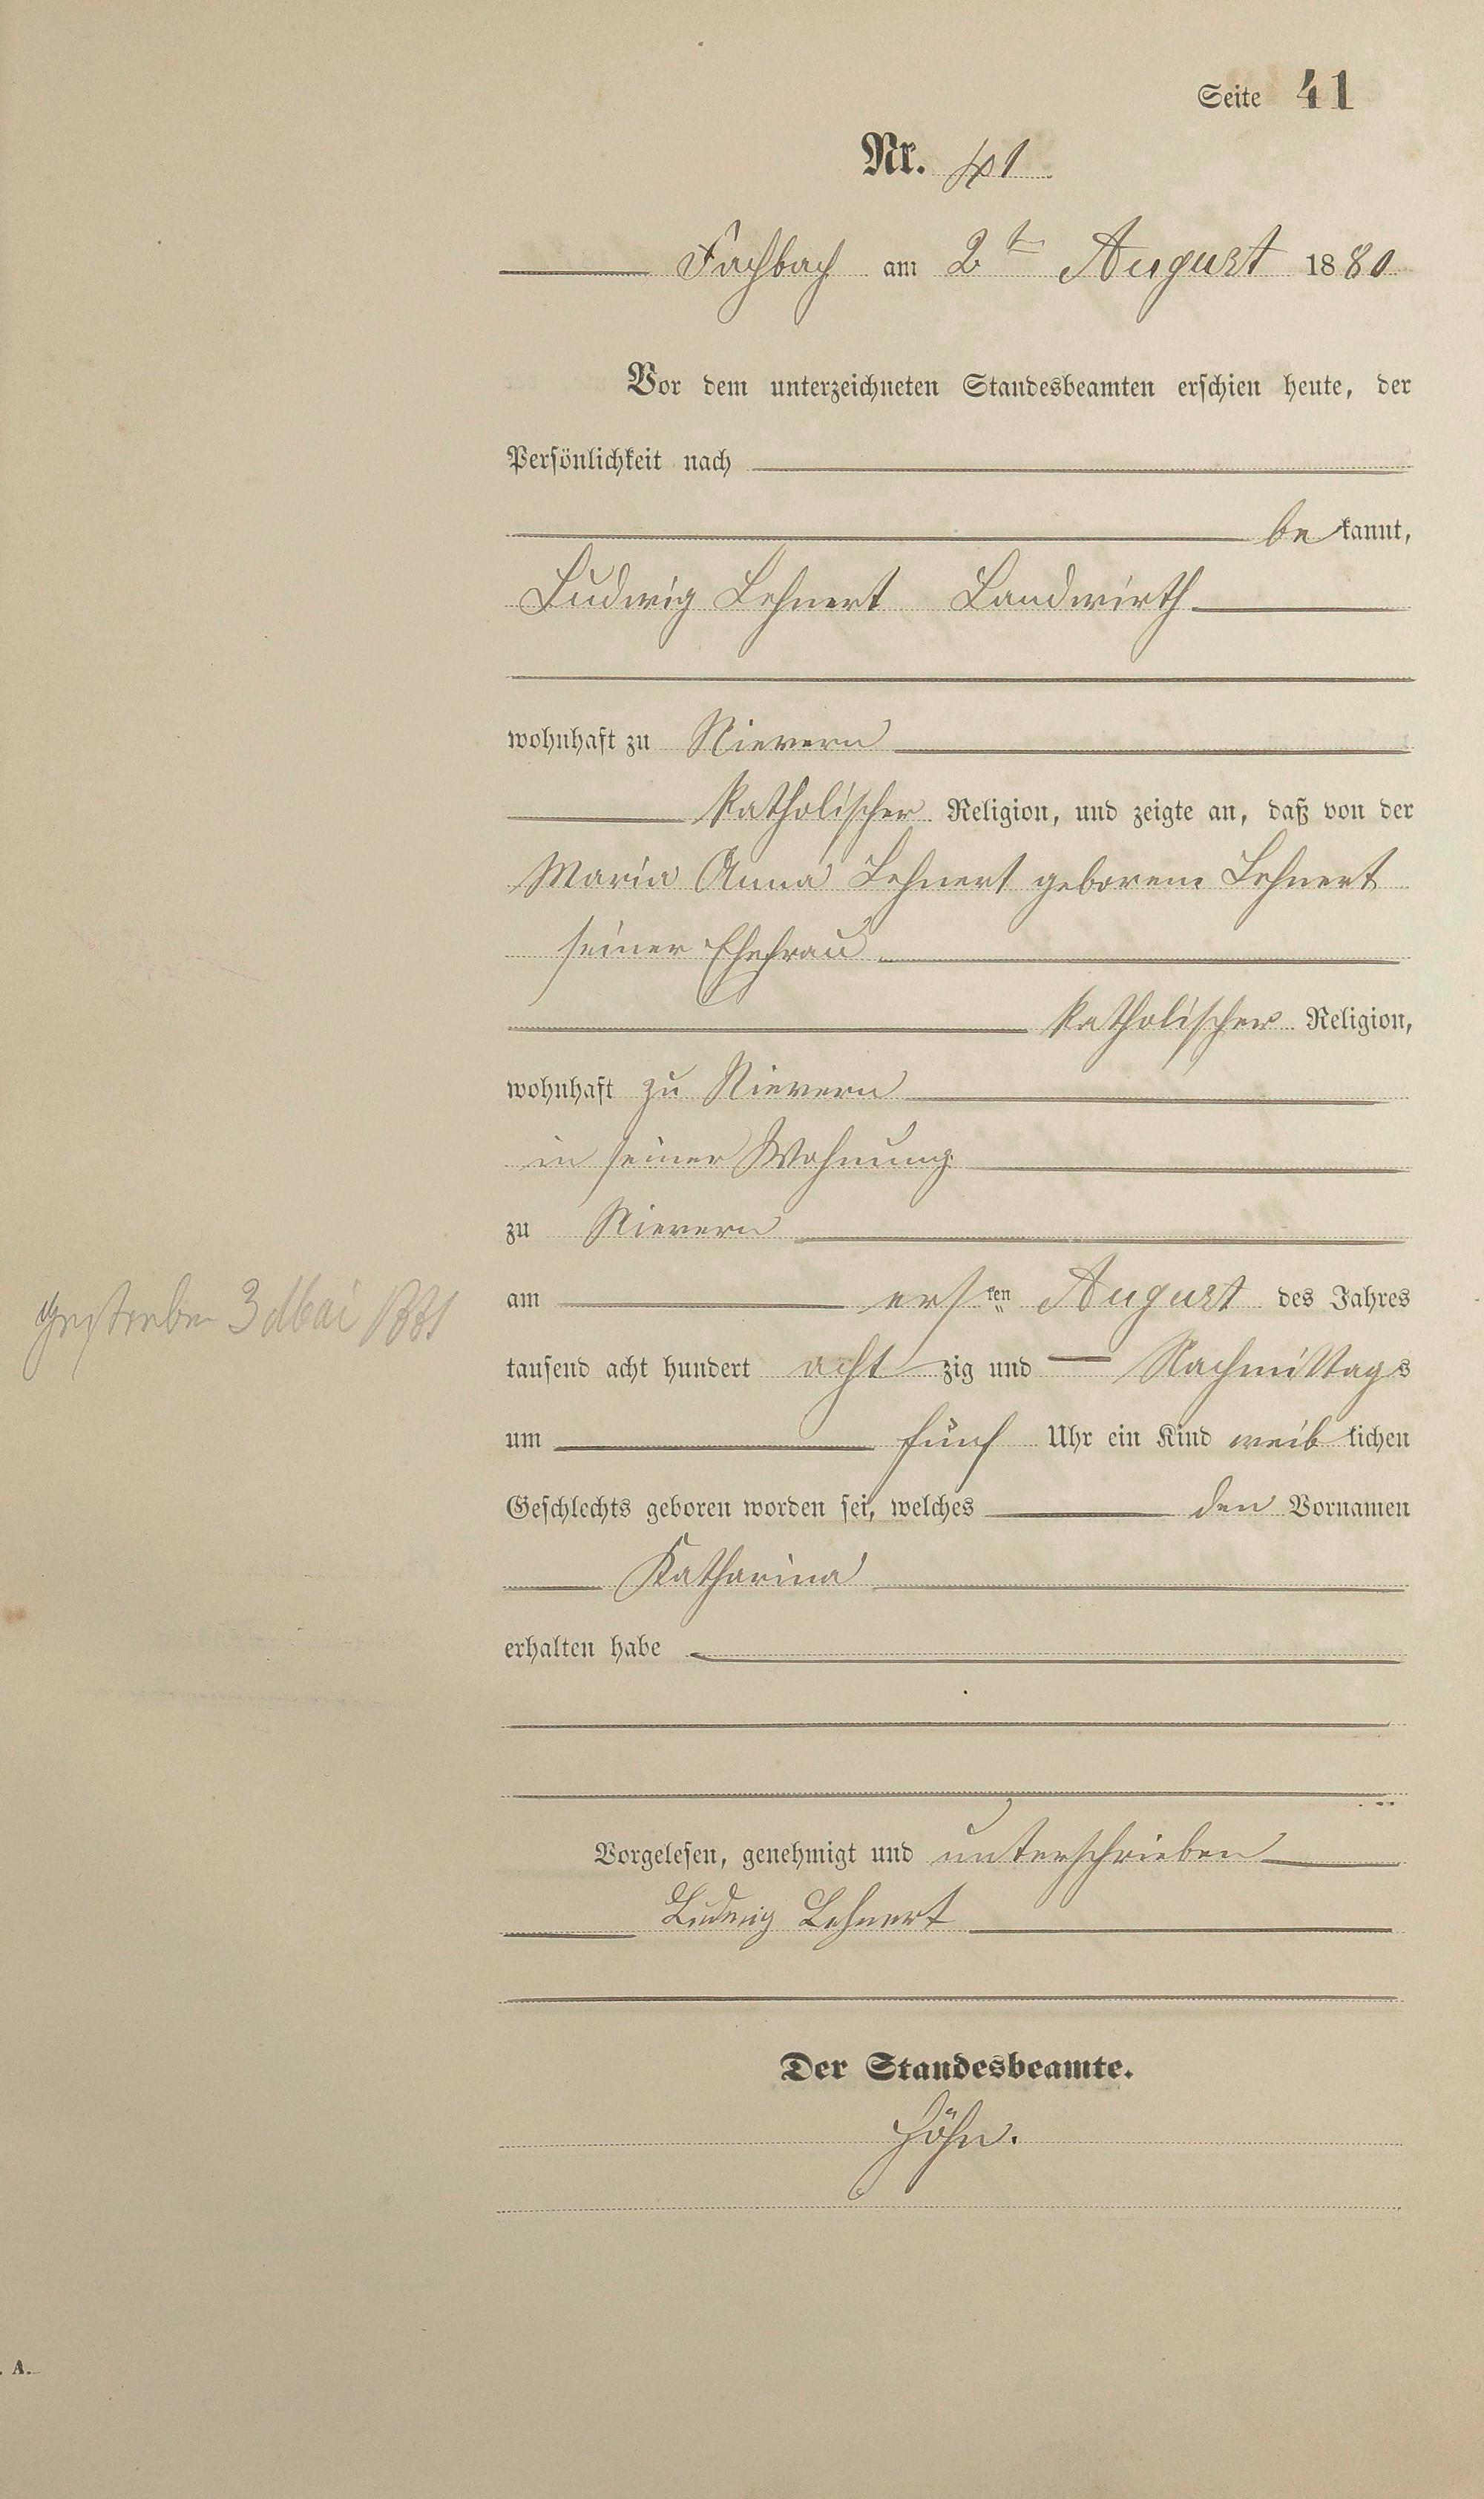 Seite 41
Nr. 41
Fachbach am 2ten August 1880
Vor dem unterzeichneten Standesbeamten erschien heute, der
Persönlichkeit nach
be kannt,
Ludwig Lehnert Landwirth
wohnhaft zu Nievern
katholischer Religion, und zeigte an, daß von der
Maria Anna Lehnert geborene Lehnert
seiner Ehefrau
katholischer Religion,
wohnhaft zu Nievern
in seiner Wohnung
zu Nievern
am ersten August des Jahres
gestorben 3 Mai
tausend acht hundert acht zig und Nachmittags
um fünf Uhr ein Kind weib lichen
Geschlechts geboren worden sei, welches den Vornamen
Katharina
erhalten habe
Vorgelesen, genehmigt und unterschrieben
Ludwig Lehnert
Der Standesbeamte.
Höhn.
. A.